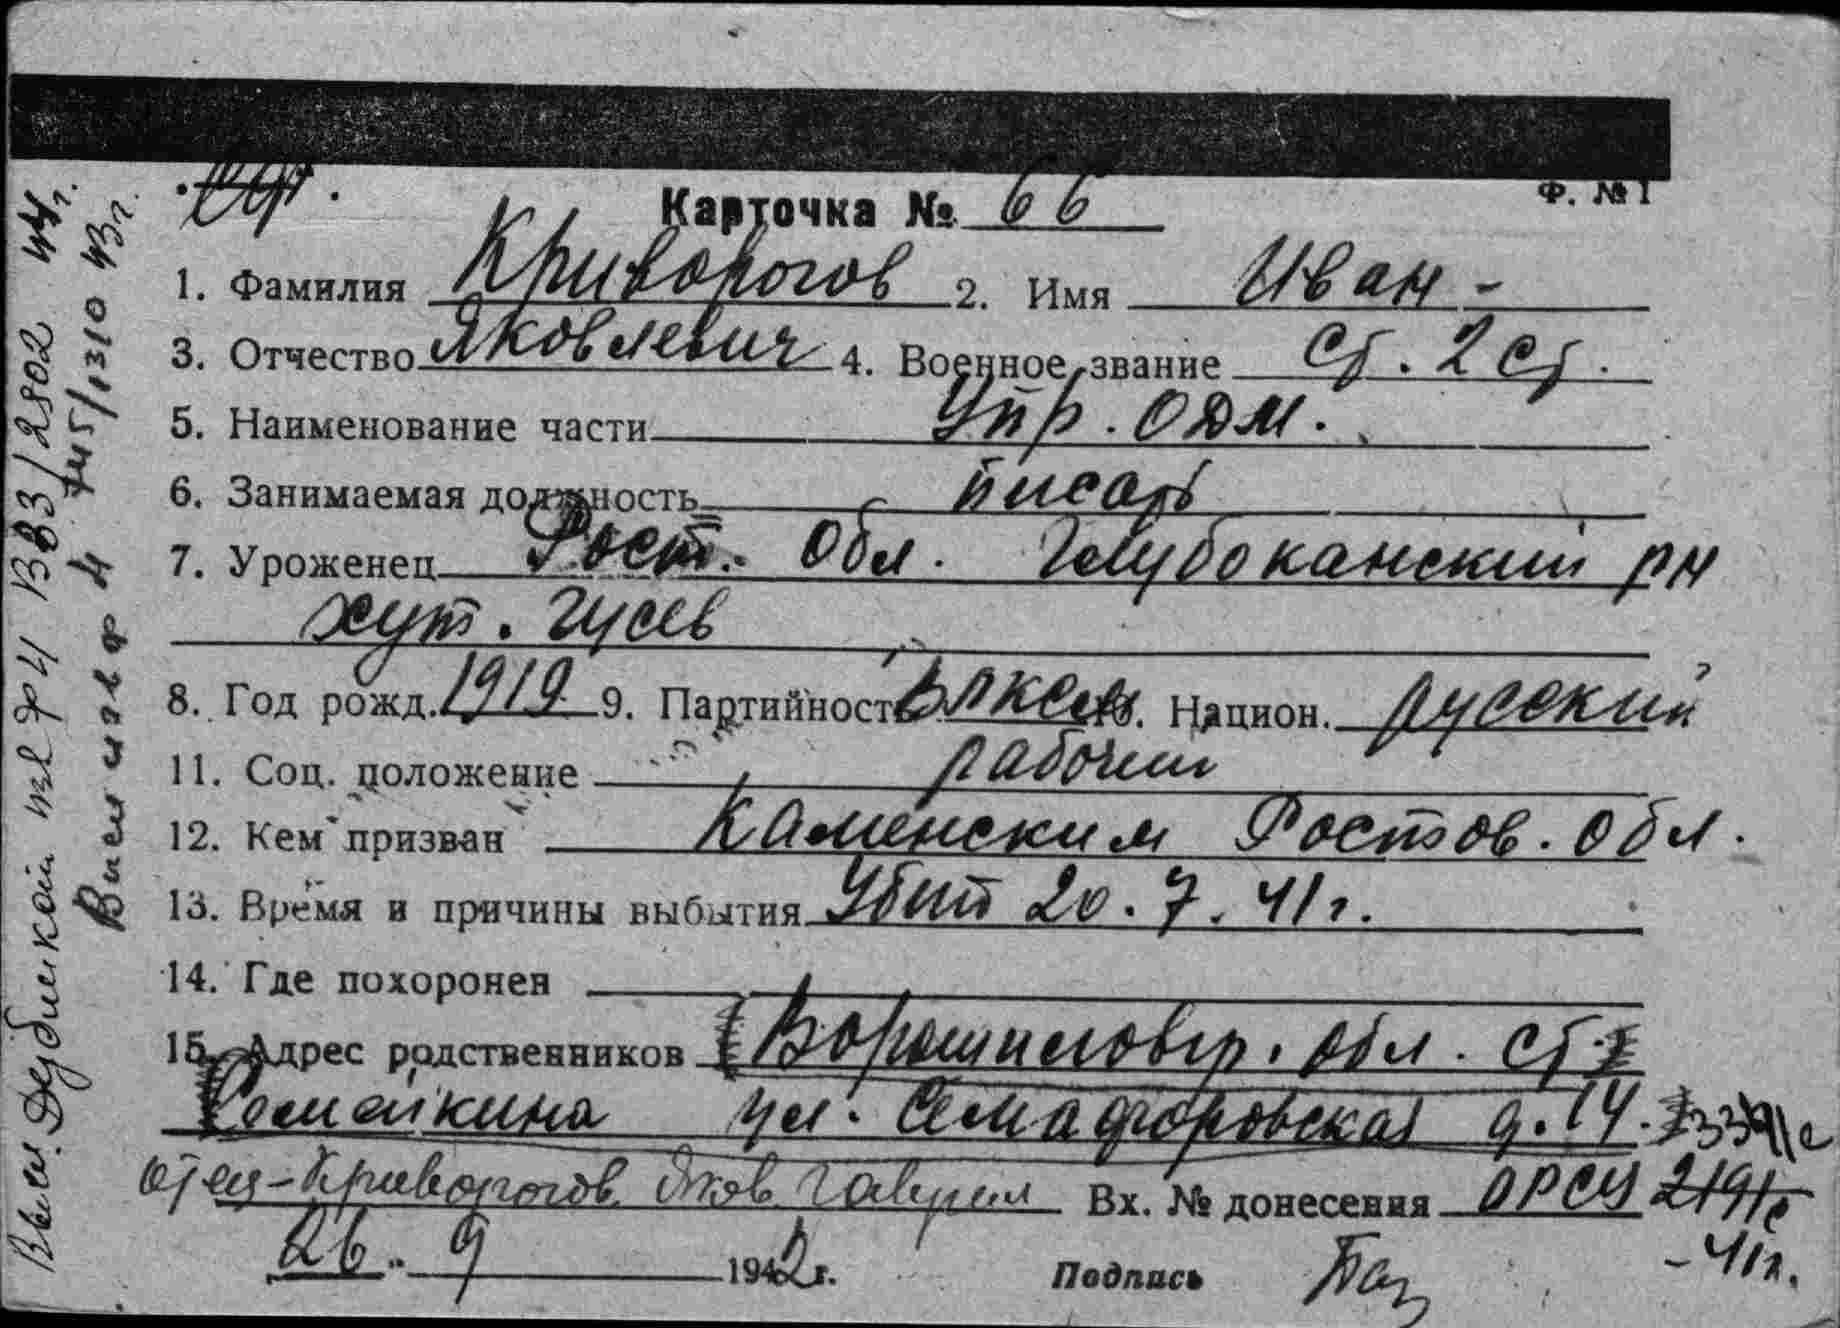 Ф. № 1
Карточка № 66
1. Фамилия Криворогов 2. Имя Иван -
3. Отчество Яковлевич 4. Военное звание ст. 2 ст.
5. Наименование части Упр. ОДМ.
6. Занимаемая должность писарь
7. Уроженец Рост. Обл. Глубоканский рн
хут. Гусев
8. Год рожд. 1919 9. Партийность ВЛКСМ 10. Национ. русский
11. Соц. положение рабочий
12. Кем призван Каменским Ростов. обл.
13. Время и причины выбытия Убит 20.7.41г.
14. Где похоронен
15. Адрес родственников Ворошиловгр. обл. ст.
Семейкина ул. Семафоровская д. 14.
отец - Криворогов Яков Гаврил Вх. № донесения ОРСУ 2191с
- 41г.
26. 9 1942 г. Подпись
Высл. Дубликат изв ф 4 ВВЗ/2802 44г.
Высл изв ф 4 745/1310 43г.